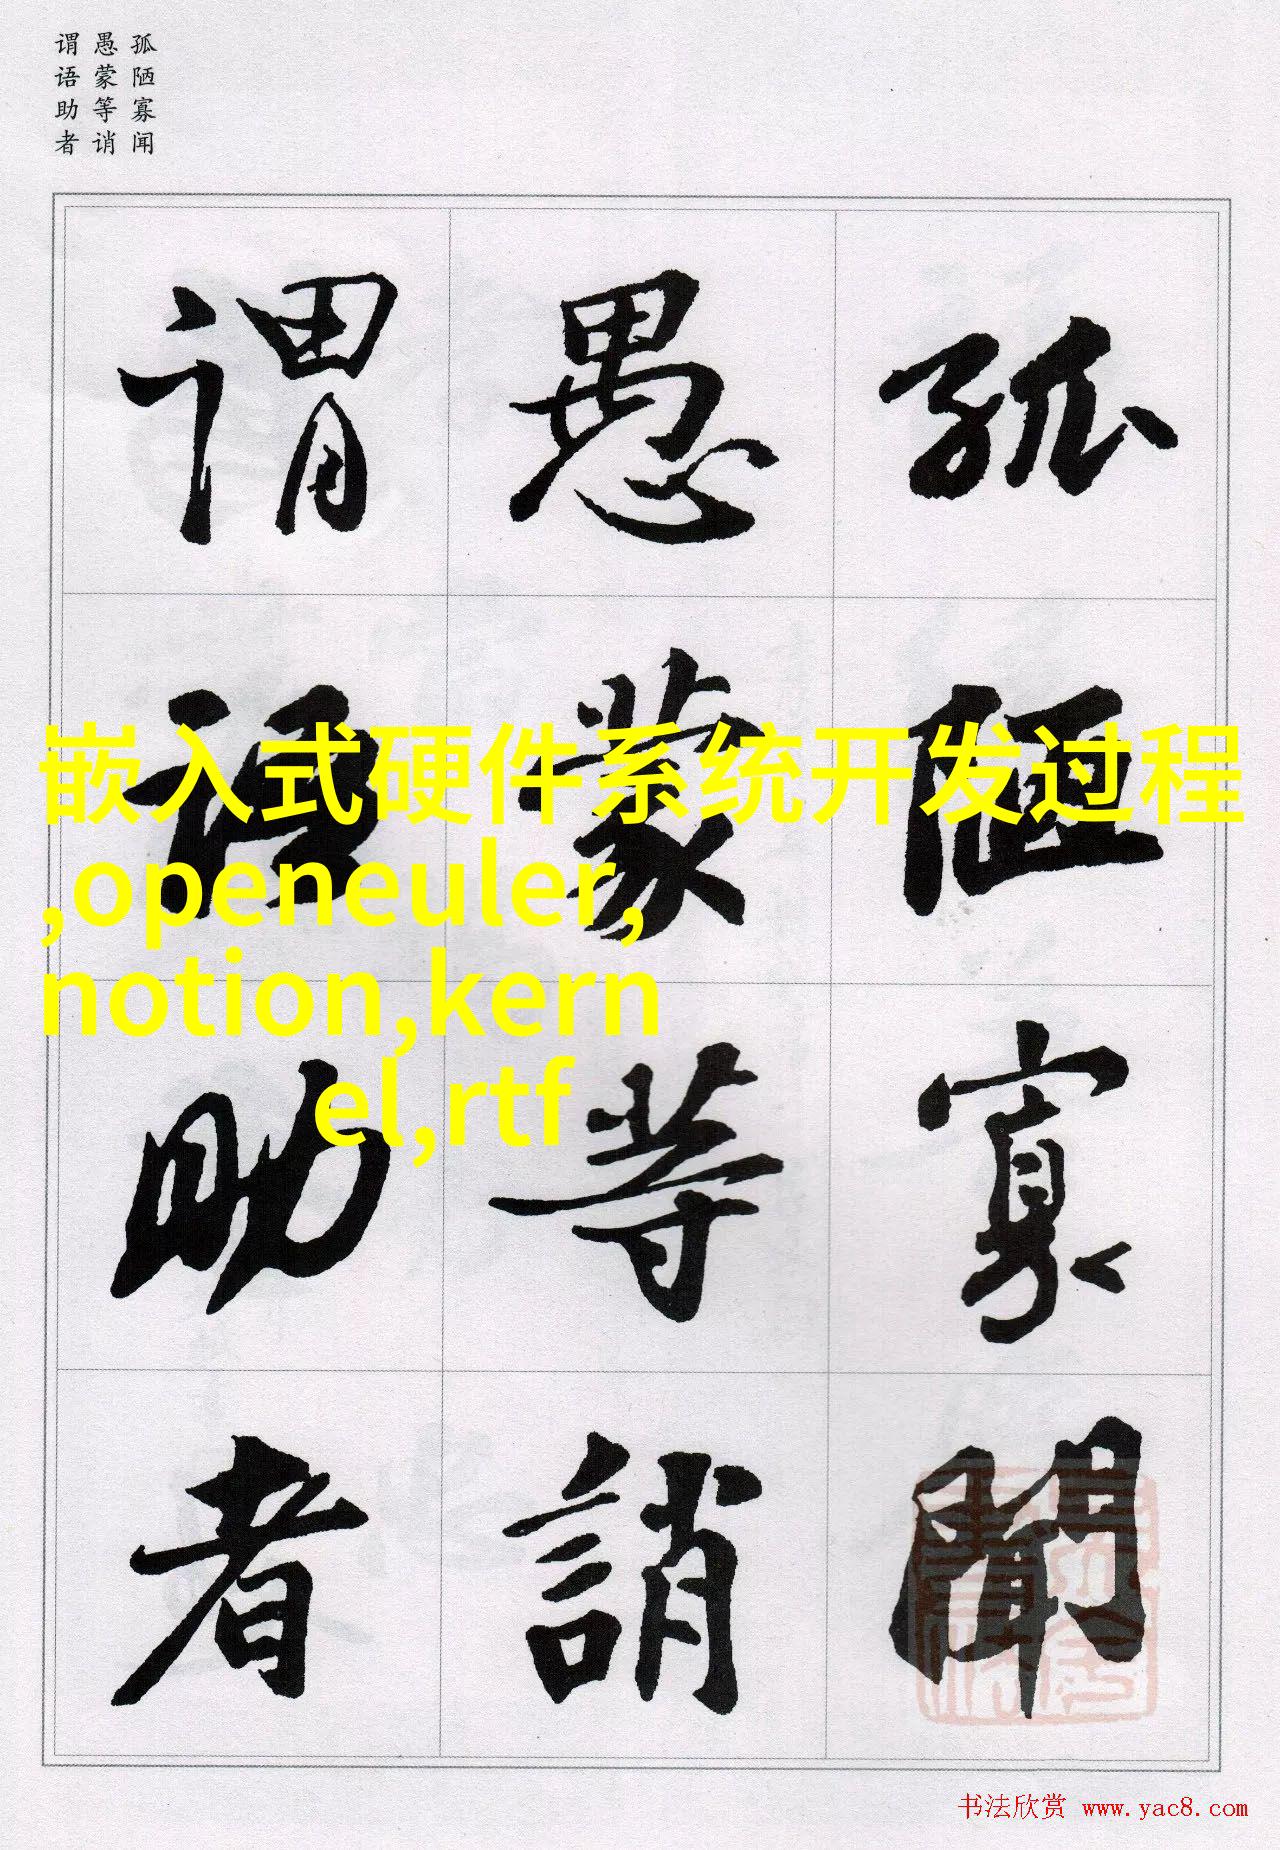 孤陋寡闻
愚蒙等诮
谓语助者
孤陋寡聞
愚蒙等誚
谓语助者
嵌入式硬件系统开发过程
,openeuler,
notion,kern
el,rtf
书法欣赏 www.yac8.com